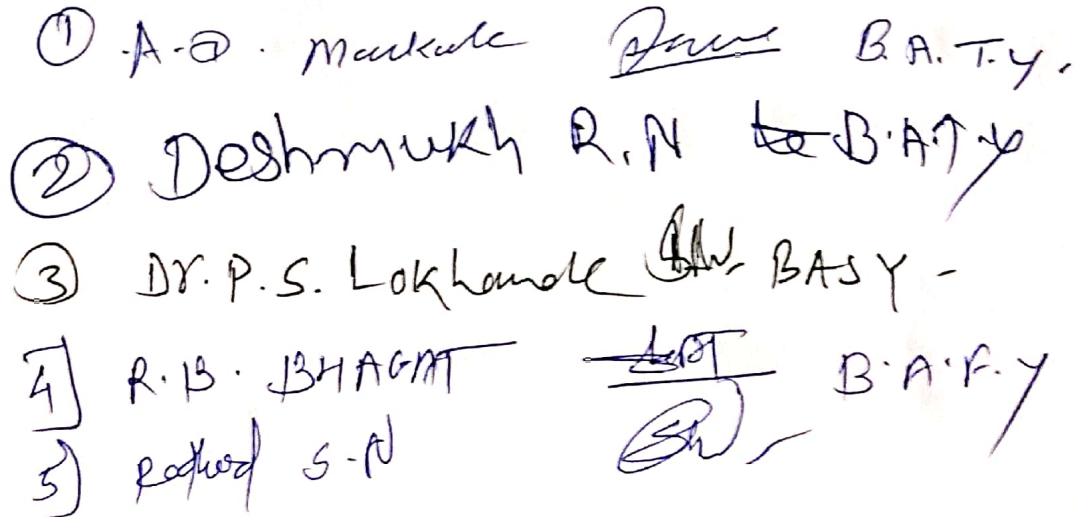 ① A.D. Markale B.A.T.Y.
② Deshmukh R.N B.A.T.Y
③ Dr. P. S. Lokhande BASY -
4] R.B. BHAGAT B.A.F.Y
5) Rathod S.N